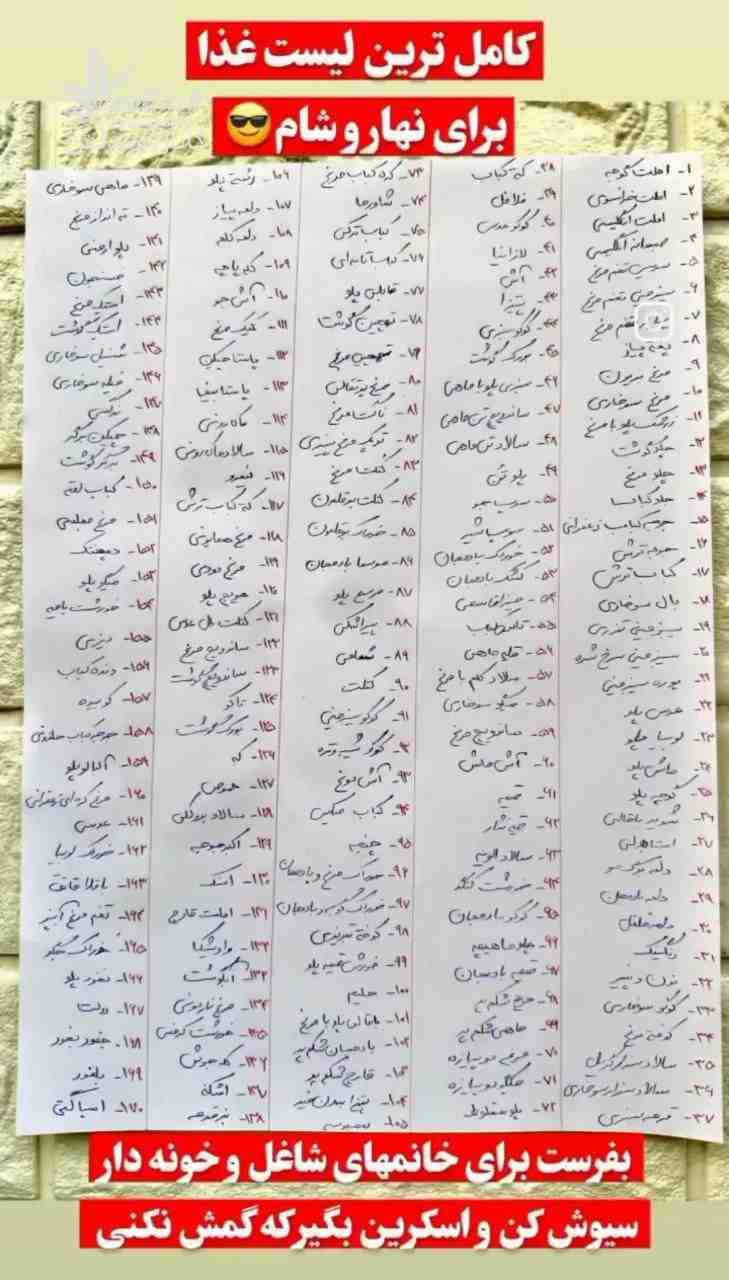 کامل ترین لیست غذا
برای نهار و شام😎
۱- املت گوجه
۲- املت فرانسوی
۳- املت انگلیسی
۴- صبحانه انگلیسی
۵- سوسیس تخم مرغ
۶- سیب زمینی تخم مرغ
۷- تخم مرغ
۸-
۹- مرغ بریون
۱۰- مرغ سوخاری
۱۱- زرشک پلو با مرغ
۱۲- چلو گوشت
۱۳- چلو مرغ
۱۴- چلو کباب
۱۵- جوجه کباب زعفرانی
۱۶- جوجه ترش
۱۷- کباب ترش
۱۸- بال سوخاری
۱۹- سیب زمینی تنوری
۲۰- سیب زمینی سرخ شده
۲۱- پوره سیب زمینی
۲۲- عدس پلو
۲۳- لوبیا پلو
۲۴- ماش پلو
۲۵- گوجه پلو
۲۶- شوید باقالی
۲۷- استامبولی
۲۸- دلمه برگ مو
۲۹- دلمه بادمجان
۳۰- دلمه فلفل
۳۱-
۳۲- نون و پنیر
۳۳- کوکو سوخاری
۳۴- کوفته مرغ
۳۵- سالاد سزار گریل
۳۶- سالاد سزار سوخاری
۳۷- قرمه سبزی
۳۸- کباب
۳۹- فلافل
۴۰- کوکو عدس
۴۱- لازانیا
۴۲- آش
۴۳- پیتزا
۴۴- کوکو سبزی
۴۵- خوراک گوشت
۴۶- سبزی پلو با ماهی
۴۷- ساندویچ تن ماهی
۴۸- سالاد تن ماهی
۴۹- پلو تن
۵۰- سوپ جو
۵۱- سوپ شیر
۵۲- خوراک بادمجان
۵۳- کشک بادمجان
۵۴- میرزا قاسمی
۵۵-
۵۶- قلیه ماهی
۵۷- سالاد کلم با مرغ
۵۸- میگو سوخاری
۵۹- ساندویچ مرغ
۶۰- آش ماش
۶۱- قیمه
۶۲- قیمه نثار
۶۳- سالاد الویه
۶۴- خورشت کنگر
۶۵- کوکو بادمجان
۶۶- چلو ماهیچه
۶۷- قیمه بادمجان
۶۸- مرغ شکم پر
۶۹- ماهی شکم پر
۷۰- مرغ دوپیازه
۷۱- میگو دوپیازه
۷۲- پلو مخلوط
۷۳- کباب مرغ
۷۴- شاورما
۷۵- کباب ترکی
۷۶- کباب تابه ای
۷۷- قابلی پلو
۷۸- ته چین گوشت
۷۹- ته چین مرغ
۸۰- مرغ پرتقالی
۸۱- ناگت مرغ
۸۲-
۸۳- کتلت مرغ
۸۴- کتلت بوقلمون
۸۵- خوراک بوقلمون
۸۶- موسا بادمجان
۸۷- مرصع پلو
۸۸- پیراشکی
۸۹- شامی
۹۰- کتلت
۹۱- کوکو سیب زمینی
۹۲- کوکو شیر و تره
۹۳- آش دوغ
۹۴- کباب چکن
۹۵- چنجه
۹۶- خوراک مرغ و بادمجان
۹۷- خوراک گوجه و بادمجان
۹۸- کوفته تبریزی
۹۹- خورش قیمه پلو
۱۰۰- حلیم
۱۰۱- باقالی پلو با مرغ
۱۰۲- بادمجان شکم پر
۱۰۳- قارچ شکم پر
۱۰۴-
۱۰۵-
۱۰۶- رشته پلو
۱۰۷- دلمه پیاز
۱۰۸- دلمه کلم
۱۰۹- کله پاچه
۱۱۰- آش جو
۱۱۱- کیک مرغ
۱۱۲- پاستا چیکن
۱۱۳- پاستا بیف
۱۱۴- ماکارونی
۱۱۵- سالاد ماکارونی
۱۱۶-
۱۱۷- کباب ترش
۱۱۸- مرغ
۱۱۹- مرغ
۱۲۰- هویج پلو
۱۲۱- کتلت عدس
۱۲۲- ساندویچ مرغ
۱۲۳- ساندویچ گوشت
۱۲۴- تاکو
۱۲۵- بورک گوشت
۱۲۶-
۱۲۷- حمص
۱۲۸- سالاد بروکلی
۱۲۹- اکبر جوجه
۱۳۰- اسنک
۱۳۱- املت قارچ
۱۳۲- واویشکا
۱۳۳- آبگوشت
۱۳۴- مرغ ناردونی
۱۳۵- خورشت کرفس
۱۳۶- کله جوش
۱۳۷- اشکنه
۱۳۸-
۱۳۹- ماهی سوخاری
۱۴۰- ته انداز مرغ
۱۴۱- دلمه ارمنی
۱۴۲-
۱۴۳- استیک مرغ
۱۴۴- استیک گوشت
۱۴۵- شنیسل سوخاری
۱۴۶- فیله سوخاری
۱۴۷- نرگسی
۱۴۸- چیکن برگر
۱۴۹- برگر گوشت
۱۵۰- کباب لقمه
۱۵۱- مرغ
۱۵۲-
۱۵۳- میگو پلو
۱۵۴- خورشت بامیه
۱۵۵- دیزی
۱۵۶- دنده کباب
۱۵۷- کوبیده
۱۵۸- جوجه کباب
۱۵۹- آلبالو پلو
۱۶۰- مرغ کره ای زعفرانی
۱۶۱- عدسی
۱۶۲- خوراک لوبیا
۱۶۳- باقلا قاتق
۱۶۴- تخم مرغ آبپز
۱۶۵- خوراک میگو
۱۶۶- نخود پلو
۱۶۷-
۱۶۸- چغور پغور
۱۶۹- بلغور
۱۷۰- اسپاگتی
بفرست برای خانمهای شاغل و خونه دار
سیوش کن و اسکرین بگیر که گمش نکنی